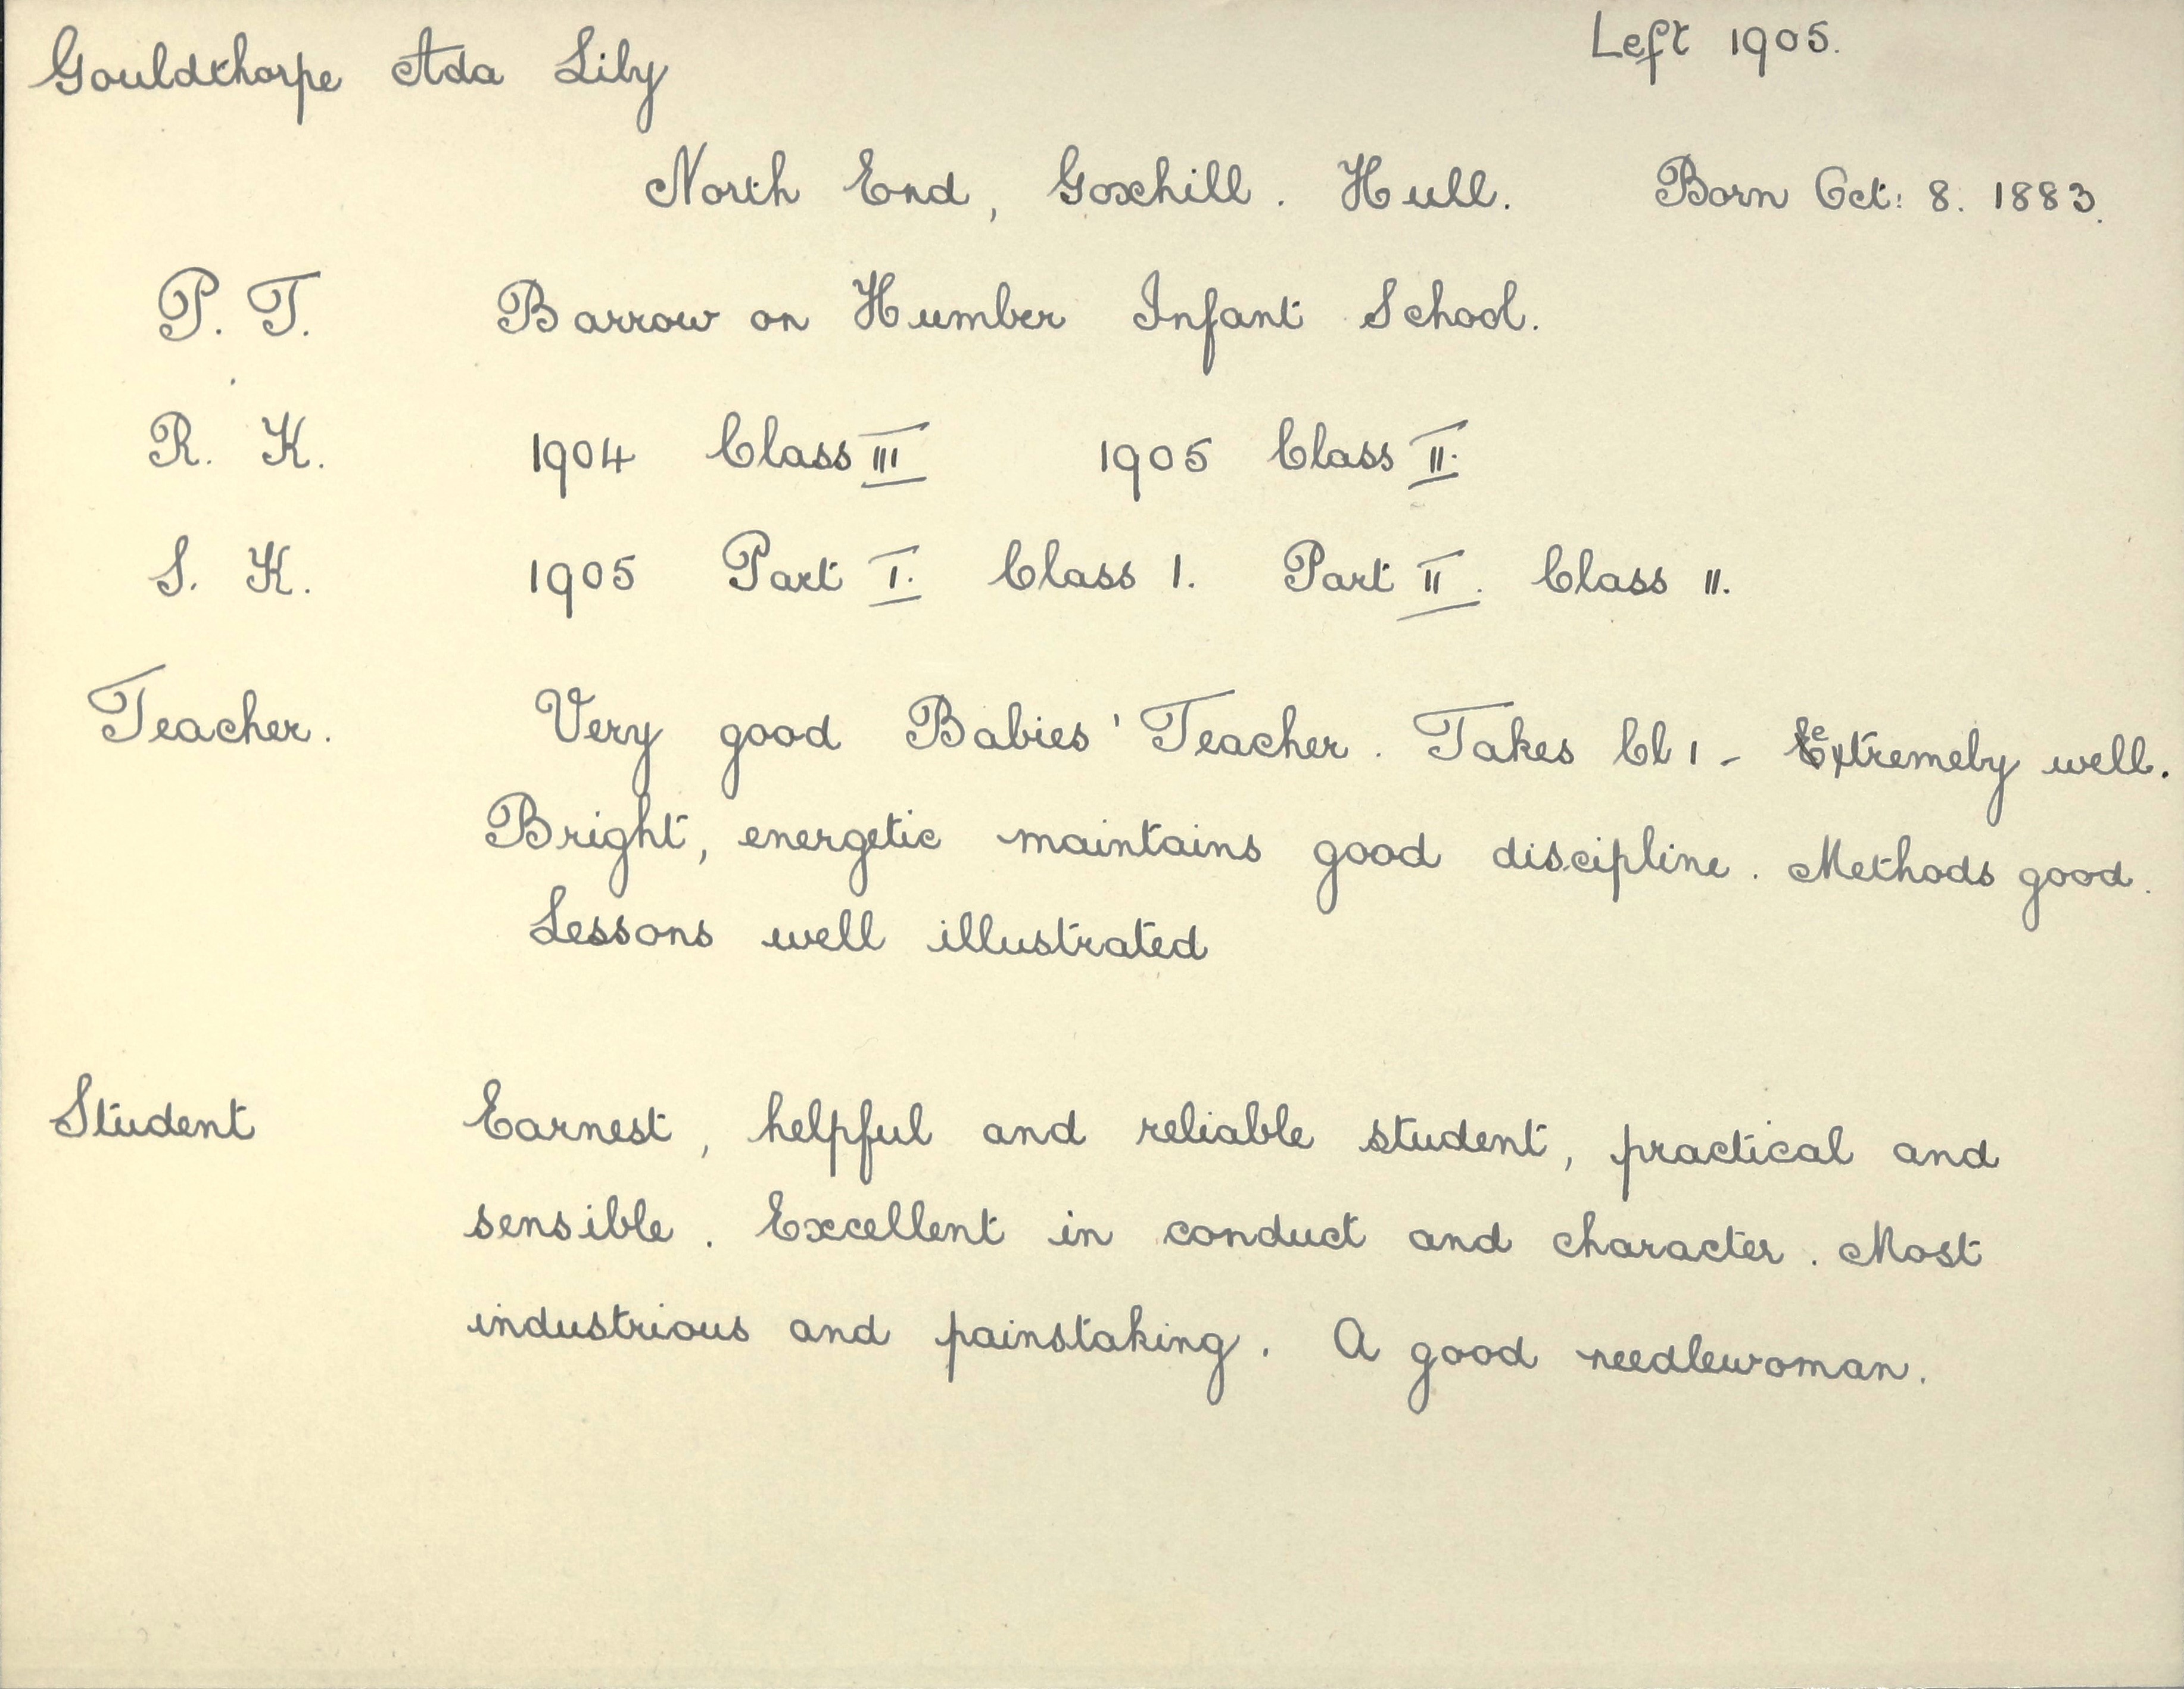 Gouldthorpe Ada Lily
Left 1905.
North End, Goxhill. Hull. Born Oct: 8. 1883.
P. T. Barrow on Humber Infant School.
R. K. 1904 Class III 1905 Class II.
S. K. 1905 Part I. Class 1. Part II. Class II.
Teacher. Very good Babies' Teacher. Takes Cl 1 - extremely well.
Bright, energetic maintains good discipline. Methods good.
Lessons well illustrated
Student Earnest, helpful and reliable student, practical and
sensible. Excellent in conduct and character. Most
industrious and painstaking. A good needlewoman.